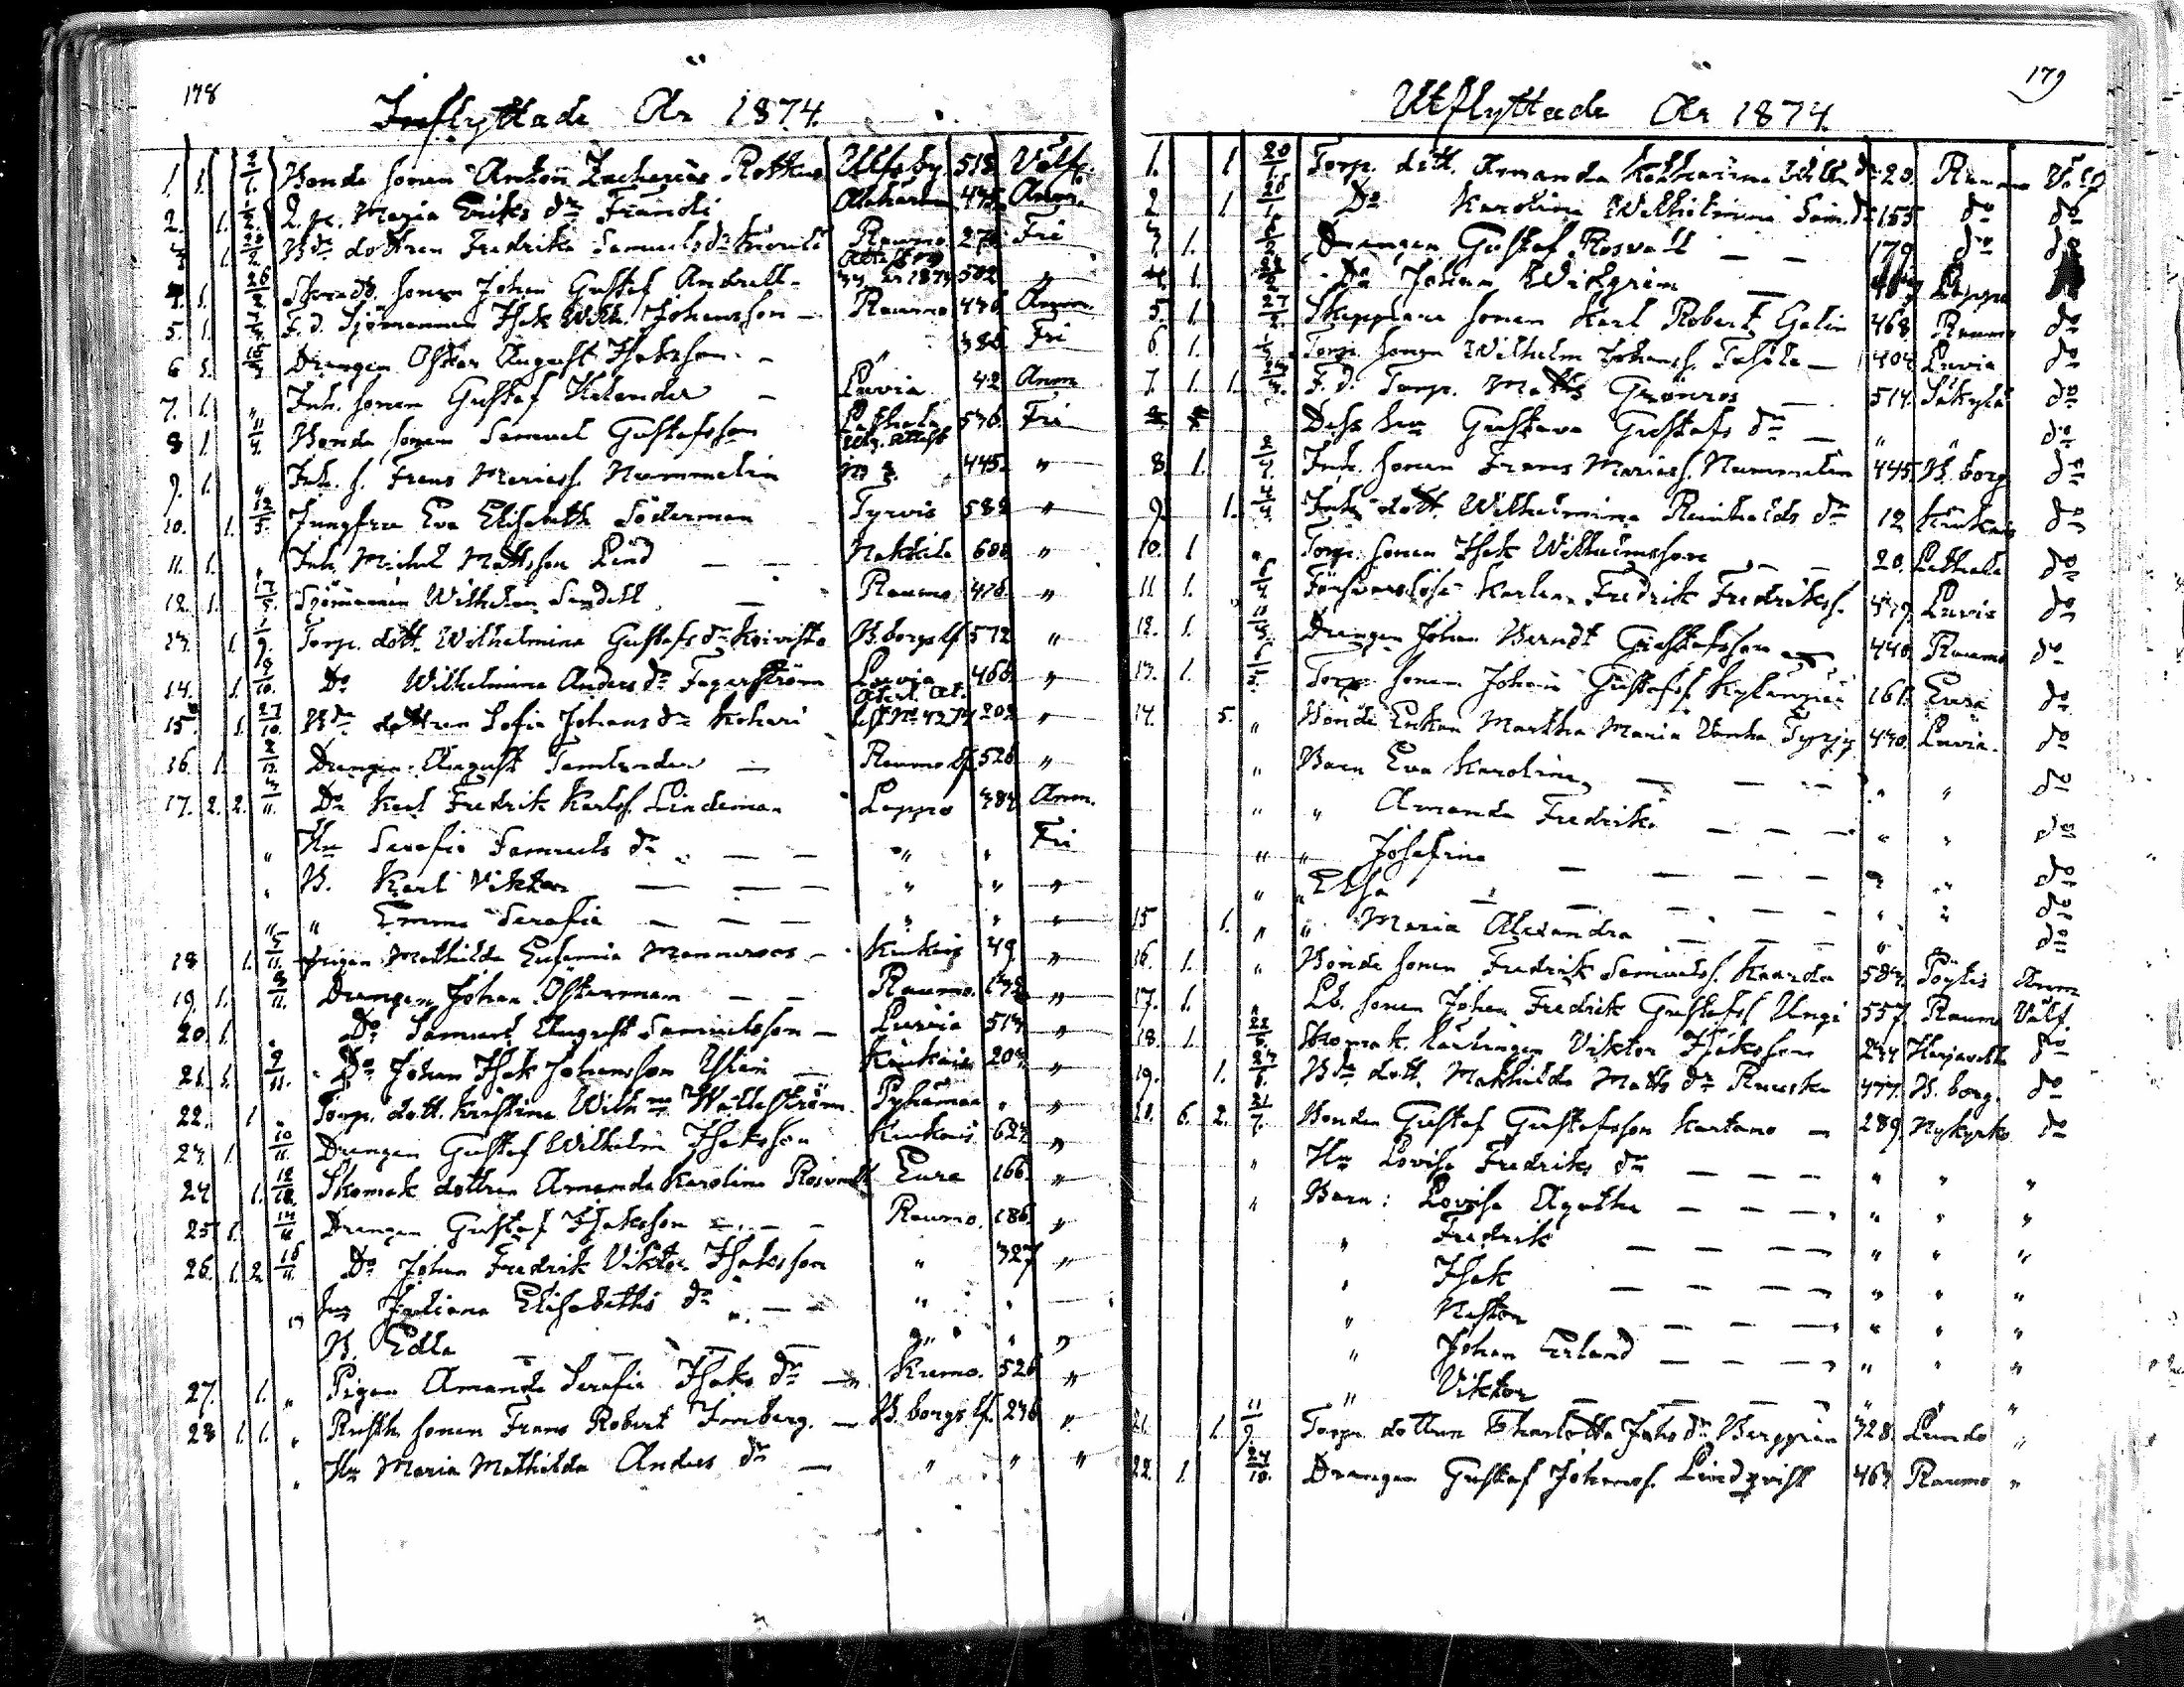 178
Inflyttade År 1874.
1. 1. 2/1. Bonde sonen Anton Zacharias Rottkus Ulfsby. 518 Välfr.
2. 1. L. p. Maria Eriks dr Frändi 475. Anm.
3 1. Bde dottren Fredrika Samuels dr Raumo 27
4. 1. 26/2 sonen Johan Gustaf Andrell - 1874 502 "
5. 1. F. d. Sjömannen Isak Wilh. Johansson - Raumo 436 Anm.
6 1. Drengen Oskar August Isaksson - " 386 Fri
7. 1. " Inh. sonen Gustaf Helander - Luvia 42 Anm
8 1. 11/4. Bonde sonen Samuel Gustafsson Lethala 536. Fri
9. 1. " Inh. s. Frans Mariess. Nummelin 445. "
10. 1. 12/5. Jungfru Eva Elisabeth Söderman Tyrvis 582 "
11. 1. " Inh. Mickel Mattsson Lind - - Nakkila 608 "
12. 1. 17/5. Sjömannen Wilhelm Sendell - Raumo 416 "
13. 1. 1/9. Torp. dott. Wilhelmina Gustafs dr Koivisto B. borgs lf. 572 "
14. 1. 9/10. Do Wilhelmina Anders dr Fagerström Luvia 466. "
15. 1. 27/10. Bde dottren Sofia Johans dr Kohari 4274 202 "
16. 1. Drengen August Tamlander - Raumo lf. 526 "
17. 2. 2. Do Karl Fredrik Karlss. Lindeman Lappo 384 Anm.
" Hu Serafia Samuels dr - - " " Fri
" B. Karl Viktor - - - " " "
" " Emma Serafia - - - " " "
18 1. 5/11. Pigan Mathilda Eufemia Mannerroos - Kiukais 49 "
19. 1. 8/11. Drengen Johan Österman - - Raumo. "
20. 1. " Do Samuel August Samuelsson - Luvia 514. "
21. 1. 9/11. Do Johan Isak Johansson Yslin - Kiukais 204 "
22. 1 " Torp. dott. Kristina Wilh:na Wallström Pyhämaa " "
23. 1. 10/11. Drengen Gustaf Wilhelm Isaksson Kiukais 624 "
24 1. Skomak. dottren Amanda Karolina Rosvall Eura 166. "
25 1. 14/11. Drengen Gustaf Isaksson - - - Raumo. 186. "
26. 1. 2. 16/11. Do Johan Fredrik Viktor Isaksson " 327 "
" Hu Juliana Elisabeths dr - - " "
B. Edla - - - " " "
27. 1. " Pigan Amanda Serafia Isaks dr - Kumo. 526 "
28 1. 1. " Rusth. sonen Frans Robert Imberg. - B. borgs lf. 236 "
" Hu Maria Mathilda Anders dr - " " "
179
Utflyttade År 1874.
1. 1 20/1. Torp. dott. Amanda Katharina Wilh. dr 20. Raumo Välf.
2. 1 26/1. Do Karolina Wilhelmina Sam. dr 155 do do
3. 1. Drengen Gustaf Rosvall - - 179 do do
4. 1. Do Johan Wikgren - Lappo
5. 1. 27/2. Skeppare sonen Karl Robert Gelin 468 Raumo do
6 1. Torp. sonen Wilhelm Johanss. - 404 Luvia do
7. 1. 1. F. d. Torp. Matts Grönroos - 514. Säkylä do
Dess hu Gustava Gustafs dr - " " do
8. 1. Inh. sonen Frans Mariess. Nummelin 445 B. borg do
9. 1. 4/4. Inh. dott. Wilhelmina Reinholds dr 12 Kiukais do
10. 1 " Torp. sonen Isak Wilhelmsson - - 20. Lethala do
11 1. Försvarslöse Karlen Fredrik Fredrikss. 479 Luvia do
12. 1. Drengen Johan Berndt Gustafsson 440. Raumo do
13. 1. Torp. sonen Johan Gustafss. 161. Eura do
14. 5. " Bonde Enkan Martha Maria Vanha 430. Luvia. do
" Barn Eva Karolina - - - " " do
" " Amanda Fredrika - - - " " do
" " Josefina - - - - " " do
" " Elsa - - - - " " do
15 1. " " Maria Alexandra - - - " do
16. 1. " Bonde sonen Fredrik Samuelss. Kaarda 584. Pöytis Anm
17. 1. " Lb. sonen Johan Fredrik Gustafss. Ungi 557. Raumo Välf.
18. 1. Skomak. lärlingen Viktor Isaksson 244 Harjavalta do
19. 1. Bde dott. Mathilda Matts dr 477. B. borg. do
20. 6. 2. 21/7. Bonden Gustaf Gustafsson Kartano - 289 Nykyrko do
" Hu Lovisa Fredriks dr - - - " " "
" Barn: Lovisa Agatha - - - " " "
" Fredrik - - - " " "
" Isak - - - - " " "
" Nestor - - - " " "
" Johan Erland - - - " " "
" Viktor - - - " " "
21. 1. 11/9. Torp. dottren Charlotta Johs dr Berggren 328. Lundo "
22. 1. 24/10. Drengen Gustaf Johanss. Lindqvist 463 Raumo "